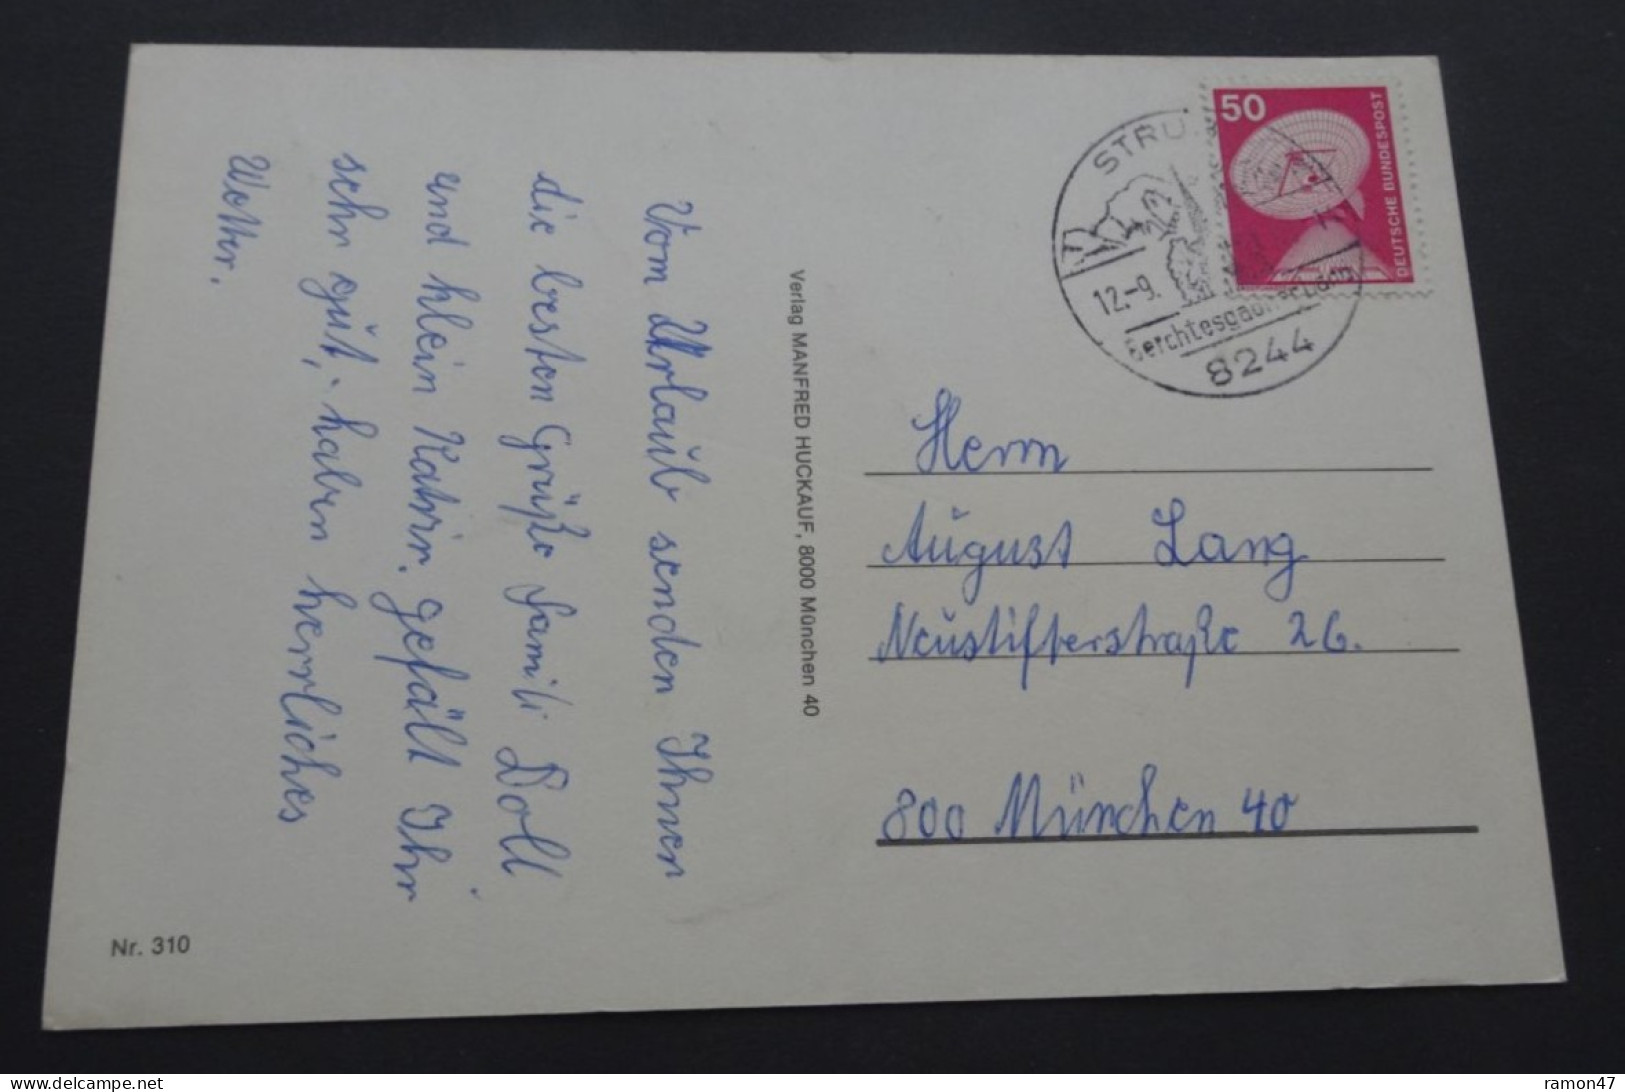 Vom Urlaub senden Ihnen
die besten Grüße Famili Doll
und klein Katrin. gefält Ihr
sehr gut, haben herrliches
Wetter.
Verlag MANFRED HUCKAUF, 8000 München 40
Nr. 310
50
DEUTSCHE BUNDESPOST
STRU
12.-9.
Berchtesgadner Land
8244
Herrn
August Lang
Neustifterstraße 26.
800 München 40
ramon47